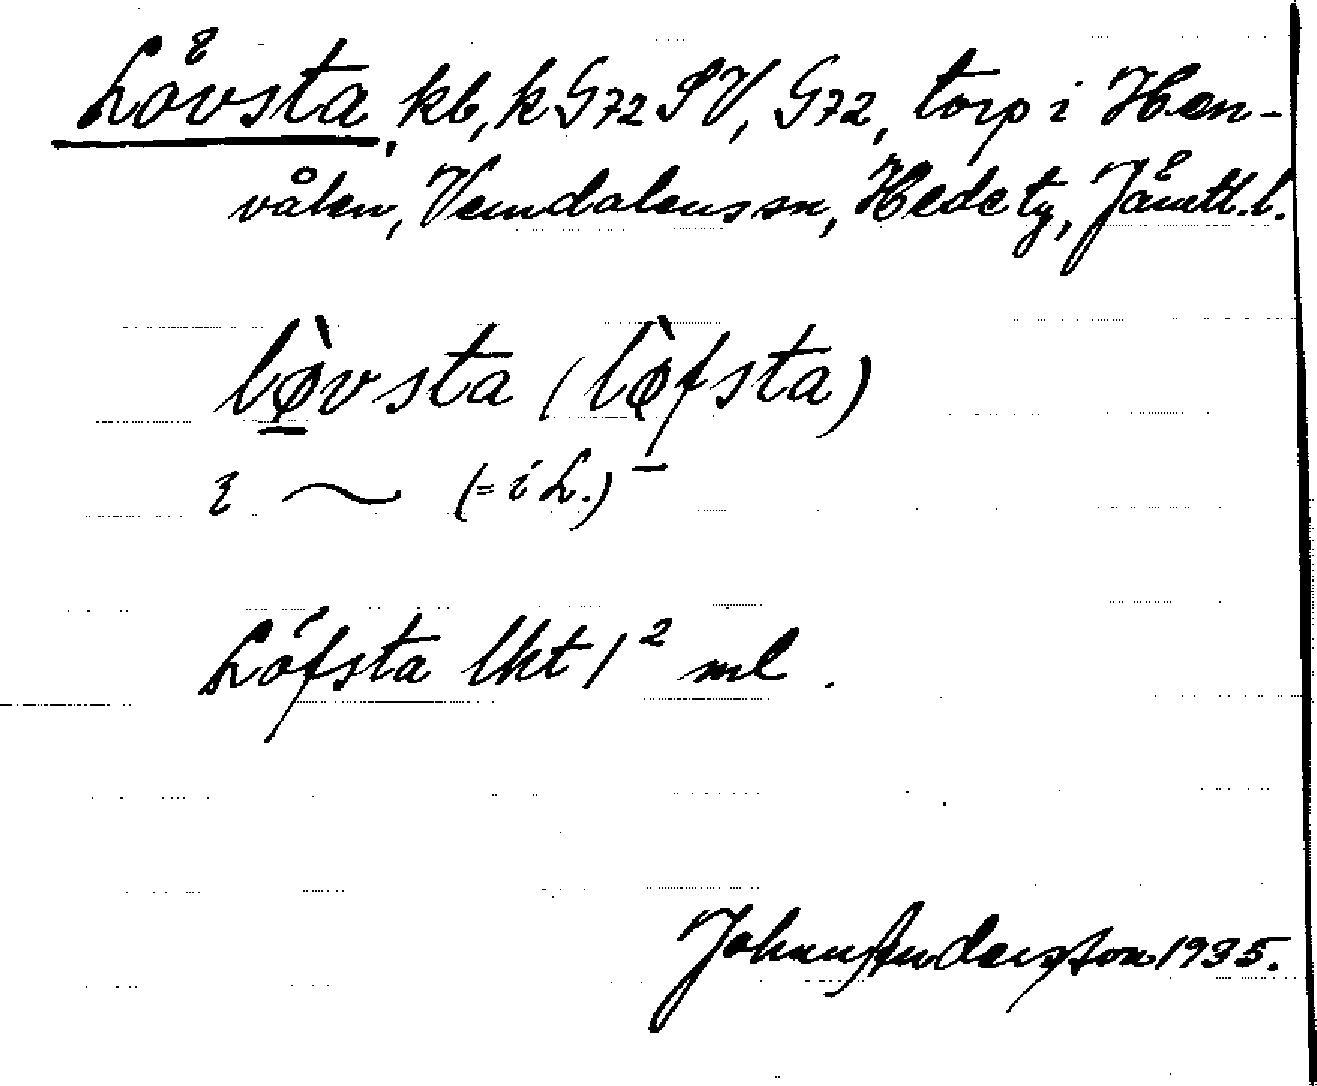 Lövsta, kb, k G72 SV, G72, torp i Hen-
vålen, Vemdalens sn, Hede tg, Jämtl. l.
lø̀vsta (lø̀fsta)
i ~ (= i L.)
Löfsta lkt 1² ml.
John Andersson 1935.